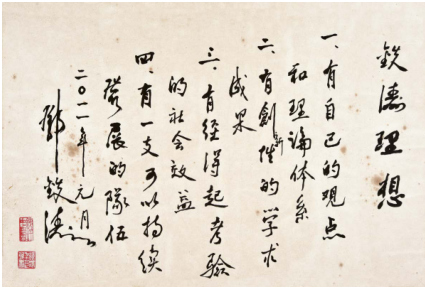 鉄涛理想
一、有自己的观点
和理論体系
二、有創新性的学术
成果
三、有经得起考驗
的社会效益
四、有一支可以持续
發展的隊伍
二〇一一年元月
鄧鉄涛